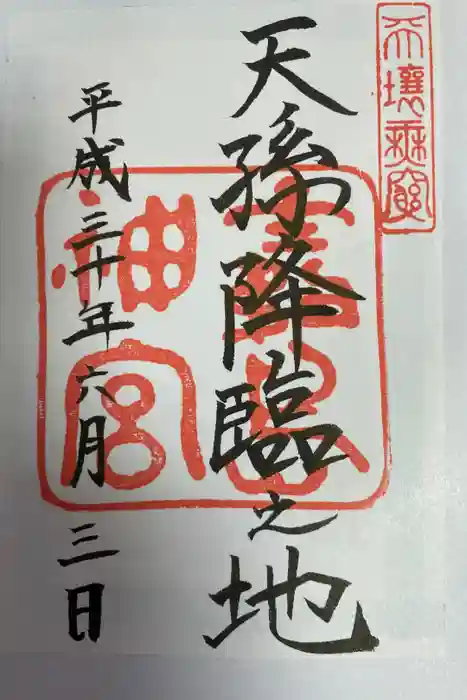 天壤無窮
天孫降臨之地
霧島
神宮
平成三十年六月三日